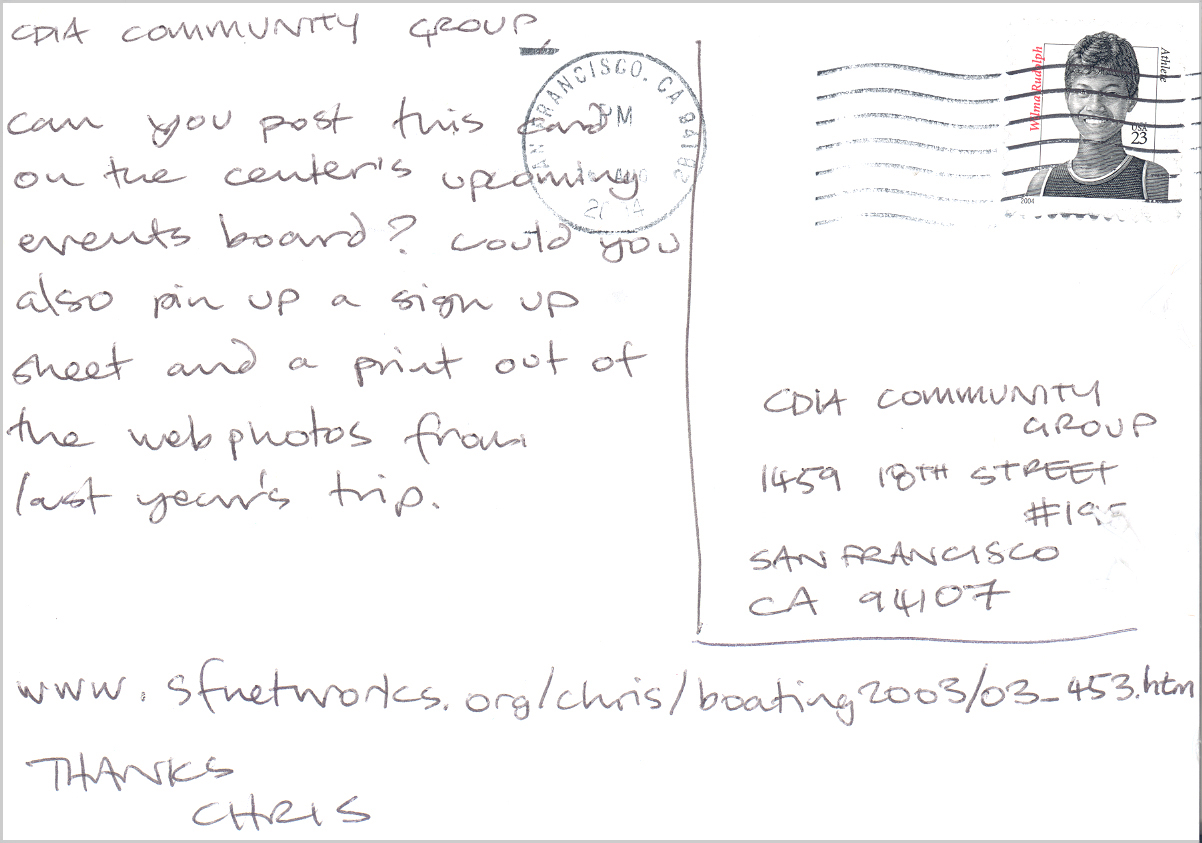 CDIA COMMUNITY GROUP,
can you post this card
on the center's upcoming
events board? Could you
also pin up a sign up
sheet and a print out of
the web photos from
last year's trip.
www.sfnetworks.org/chris/boating2003/03_453.htm
THANKS
CHRIS
SAN FRANCISCO, CA 941
PM
2004
Wilma Rudolph
Athlete
USA
23
2004
CDIA COMMUNITY
GROUP
1459 18TH STREET
#195
SAN FRANCISCO
CA 94107